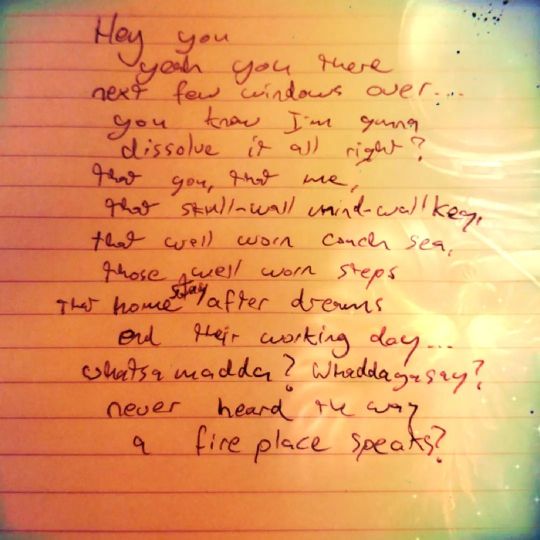 Hey you
yeah you there
next few windows over...
you know I'm gunna
dissolve it all right?
that you, that me,
that skull-wall mind-wall key,
that well worn couch sea,
those well worn steps
that home stay after dreams
end their working day...
whatsa madda? Whaddayasay?
never heard the way
a fire place speaks?